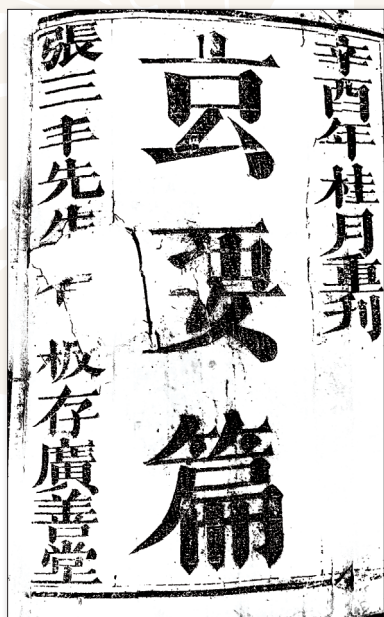 辛酉年桂月重刊
玄要篇
張三丰先生 板存廣善堂